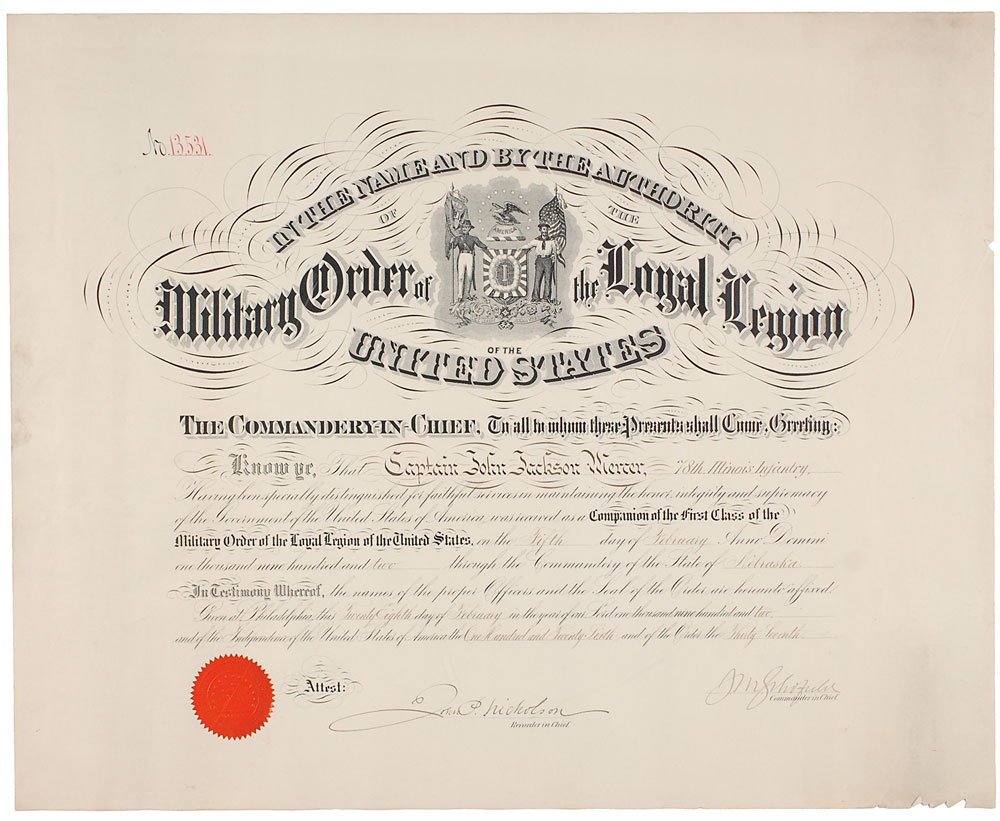 No. 13531
IN THE NAME AND BY THE AUTHORITY
OF THE
AMERICA
Military Order of the Loyal Legion
OF THE
UNITED STATES
THE COMMANDERY-IN-CHIEF, To all to whom these Presents shall Come, Greeting:
Know ye, That Captain John Jackson Mercer, 78th Illinois Infantry,
Having been specially distinguished for faithful services in maintaining the honor, integrity and supremacy
of the Government of the United States of America, was received as a Companion of the First Class of the
Military Order of the Loyal Legion of the United States, on the Fifth day of February Anno Domini
one thousand nine hundred and two through the Commandery of the State of Nebraska.
In Testimony Whereof, the names of the proper Officers and the Seal of the Order are hereunto affixed.
Given at Philadelphia, this Twenty Eighth day of February in the year of our Lord one thousand nine hundred and two,
and of the Independence of the United States of America the One Hundred and Twenty Sixth and of the Order the Thirty Seventh.
Attest:
John P. Nicholson
Recorder in Chief
J M Schofield
Commander in Chief